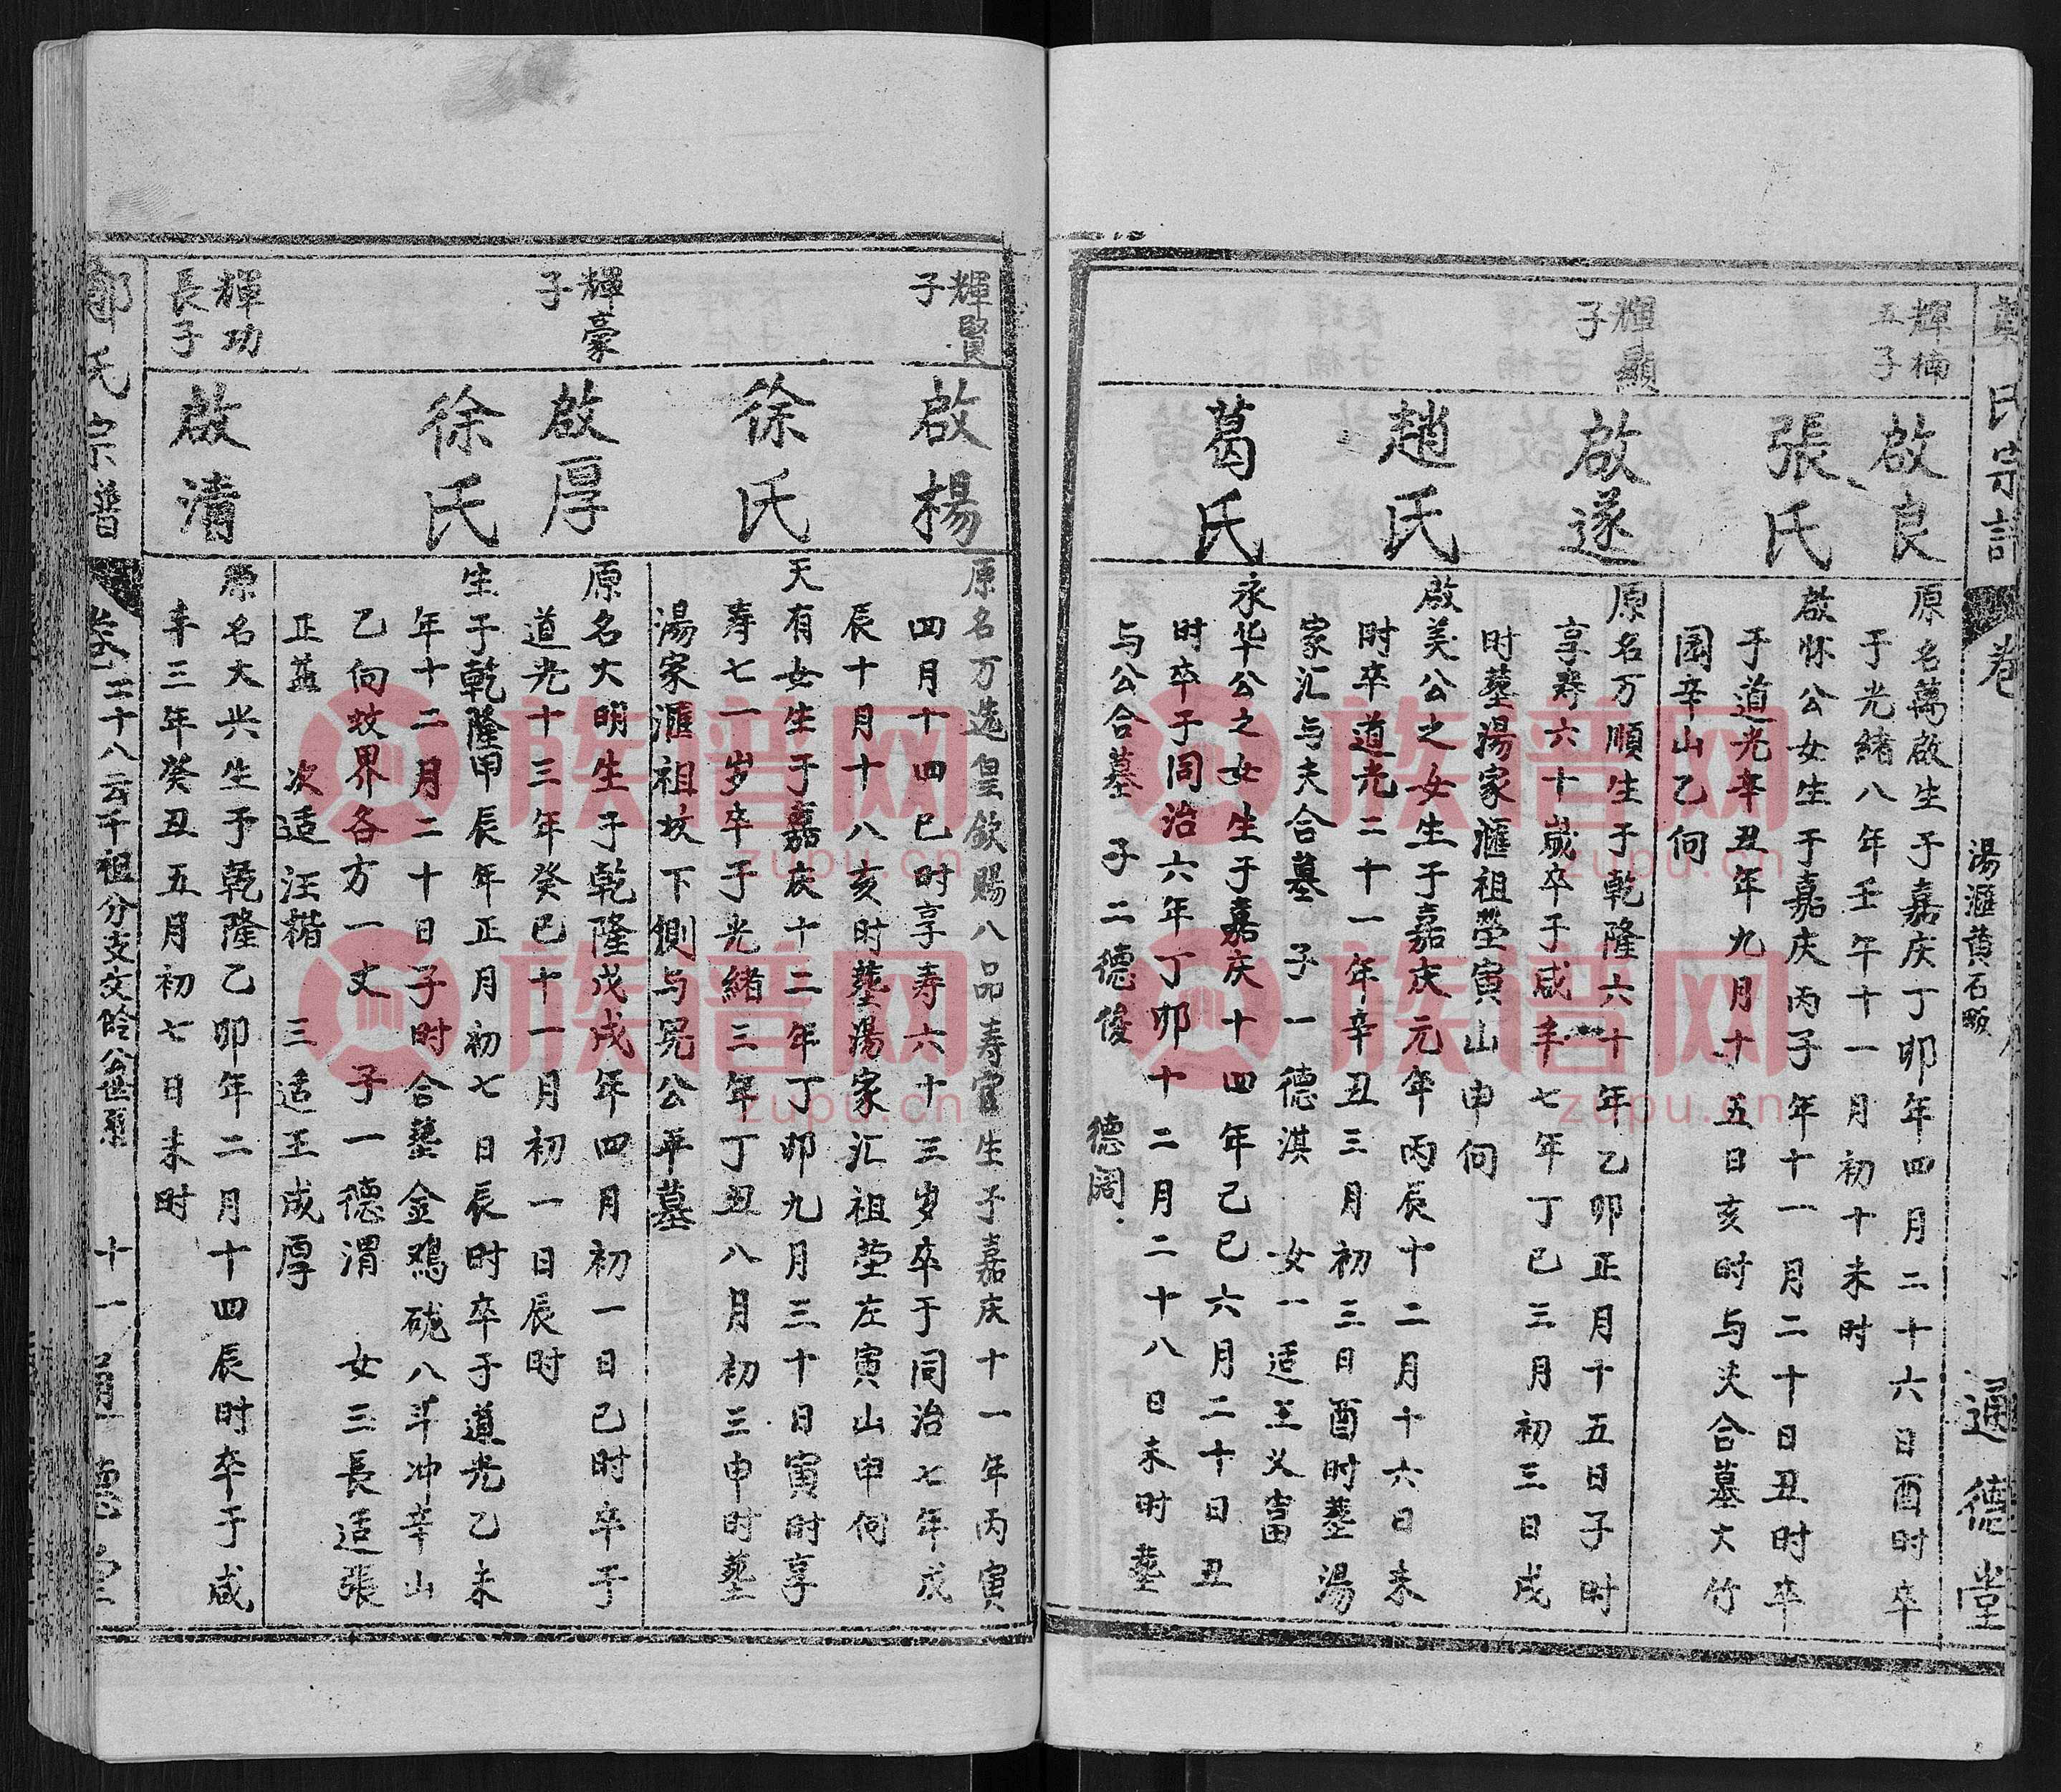 氏宗譜
卷
湯滙黄石畈
通德堂
輝楠
五子
啟良
原名萬啟生于嘉庆丁卯年四月二十六日酉时卒
于光緒八年壬午十一月初十未时
張氏
啟怀公女生于嘉庆丙子年十一月二十日丑时卒
于道光辛丑年九月十五日亥时与夫合墓大竹
园辛山乙向
輝顯
子
啟遂
原名万順生于乾隆六十年乙卯正月十五日子时
享寿六十歲卒于咸丰七年丁巳三月初三日戌
时葬湯家滙祖塋寅山申向
趙氏
啟美公之女生于嘉庆元年丙辰十二月十六日未
时卒道光二十一年辛丑三月初三日酉时葬湯
家汇与夫合墓 子一德淇 女一适王义富
葛氏
永华公之女生于嘉庆十四年己巳六月二十日丑
时卒于同治六年丁卯十二月二十八日未时葬
与公合墓 子二德俊 德阔
輝賢
子
啟楊
原名万选皇欽賜八品寿官生于嘉庆十一年丙寅
四月十四巳时享寿六十三岁卒于同治七年戊
辰十月十八亥时葬湯家汇祖茔左寅山申向
徐氏
天有女生于嘉庆十二年丁卯九月三十日寅时享
寿七一岁卒于光緒三年丁丑八月初三申时葬
湯家滙祖坟下侧与冕公平墓
輝豪
子
啟厚
原名大明生于乾隆戊戌年四月初一日巳时卒于
道光十三年癸巳十一月初一日辰时
徐氏
生于乾隆甲辰年正月初七日辰时卒于道光乙未
年十二月二十日子时合葬金鸡硴八斗冲辛山
乙向坟界各方一丈 子一德渭 女三長适張
正蓝 次适汪楷 三适王成厚
輝功
長子
啟清
原名大兴生于乾隆乙卯年二月十四辰时卒于咸
丰三年癸丑五月初七日未时
氏宗譜
卷二十八云千祖分支文晗公世系
十一
通德堂
族譜网
zupu.cn
族譜网
zupu.cn
族譜网
zupu.cn
族譜网
zupu.cn